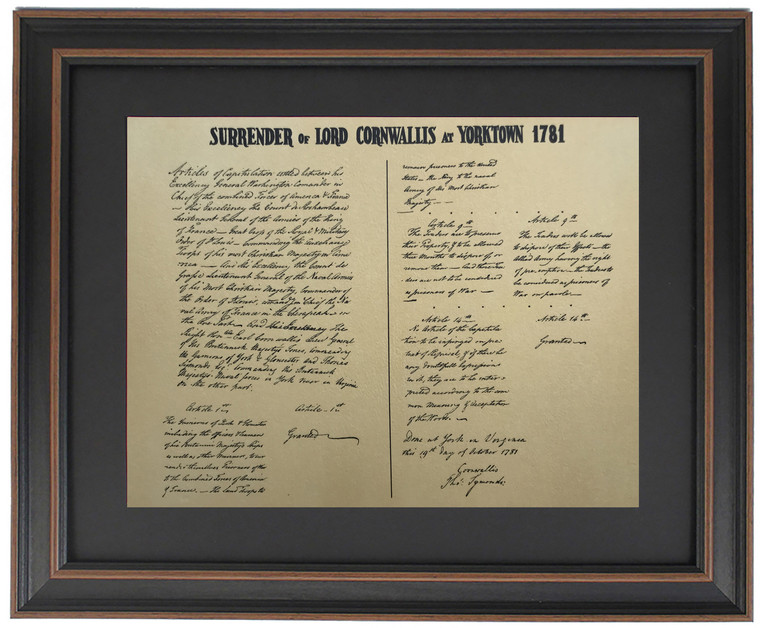 SURRENDER OF LORD CORNWALLIS AT YORKTOWN 1781
Articles of Capitulation settled between his
Excellency General Washington Comander in
Chief of the combined Forces of America & France
— His Excellency The Count de Rochambeau
Lieutenant General of the Armies of the King
of France — Great Cross of the Royal & Military
Order of St Louis — Commanding the auxiliary
Troops of his most Christian Majesty in Ame
rica — And His Excellency the Count de
Grasse Lieutenant General of the Naval Armies
of his Most Christian Majesty, Commander of
the Order of St Louis, commdg in Chief the Na
val Army of France in the Chesapeak — on
the One Part. And His Excellency The
Right Honble Earl Cornwallis Lieut General
of His Britannick Majestys Forces, commanding
the Garrisons of York & Gloucester and Thomas
Symonds Esq Commanding his Britannick
Majestys Naval forces in York River in Virginia
on the other part.
Article 1st
The Garrisons of York & Gloucester
including the officers & Seamen
of his Britannic Majestys Ships
as well as other Mariners, to sur
render themselves Prisoners of War
to the Combined Forces of America
& France — The land Troops to
Article 1st
Granted
remain prisoners to the United
States — the Navy to the naval
Army of his Most Christian
Majesty —
Article 9th
The Traders are to preserve
their Property, & to be allowed
three Months to dispose of or
remove them — And those tra
ders are not to be considered
as prisoners of War —
Article 9th
The Traders will be allowed
to dispose of their Effects — the
Allied Army having the right
of pre-emption — the Traders to
be considered as prisoners of
War on parole —
Article 14th
No Article of the Capitula
tion to be infringed on pre
tent of Reprisal, & if there be
any doubtfull Expressions
in it, they are to be inter
preted according to the com
mon Meaning & Acceptation
of the Words —
Article 14th
Granted
Done at York in Virginia
this 19th day of October 1781
Cornwallis
Thos. Symonds